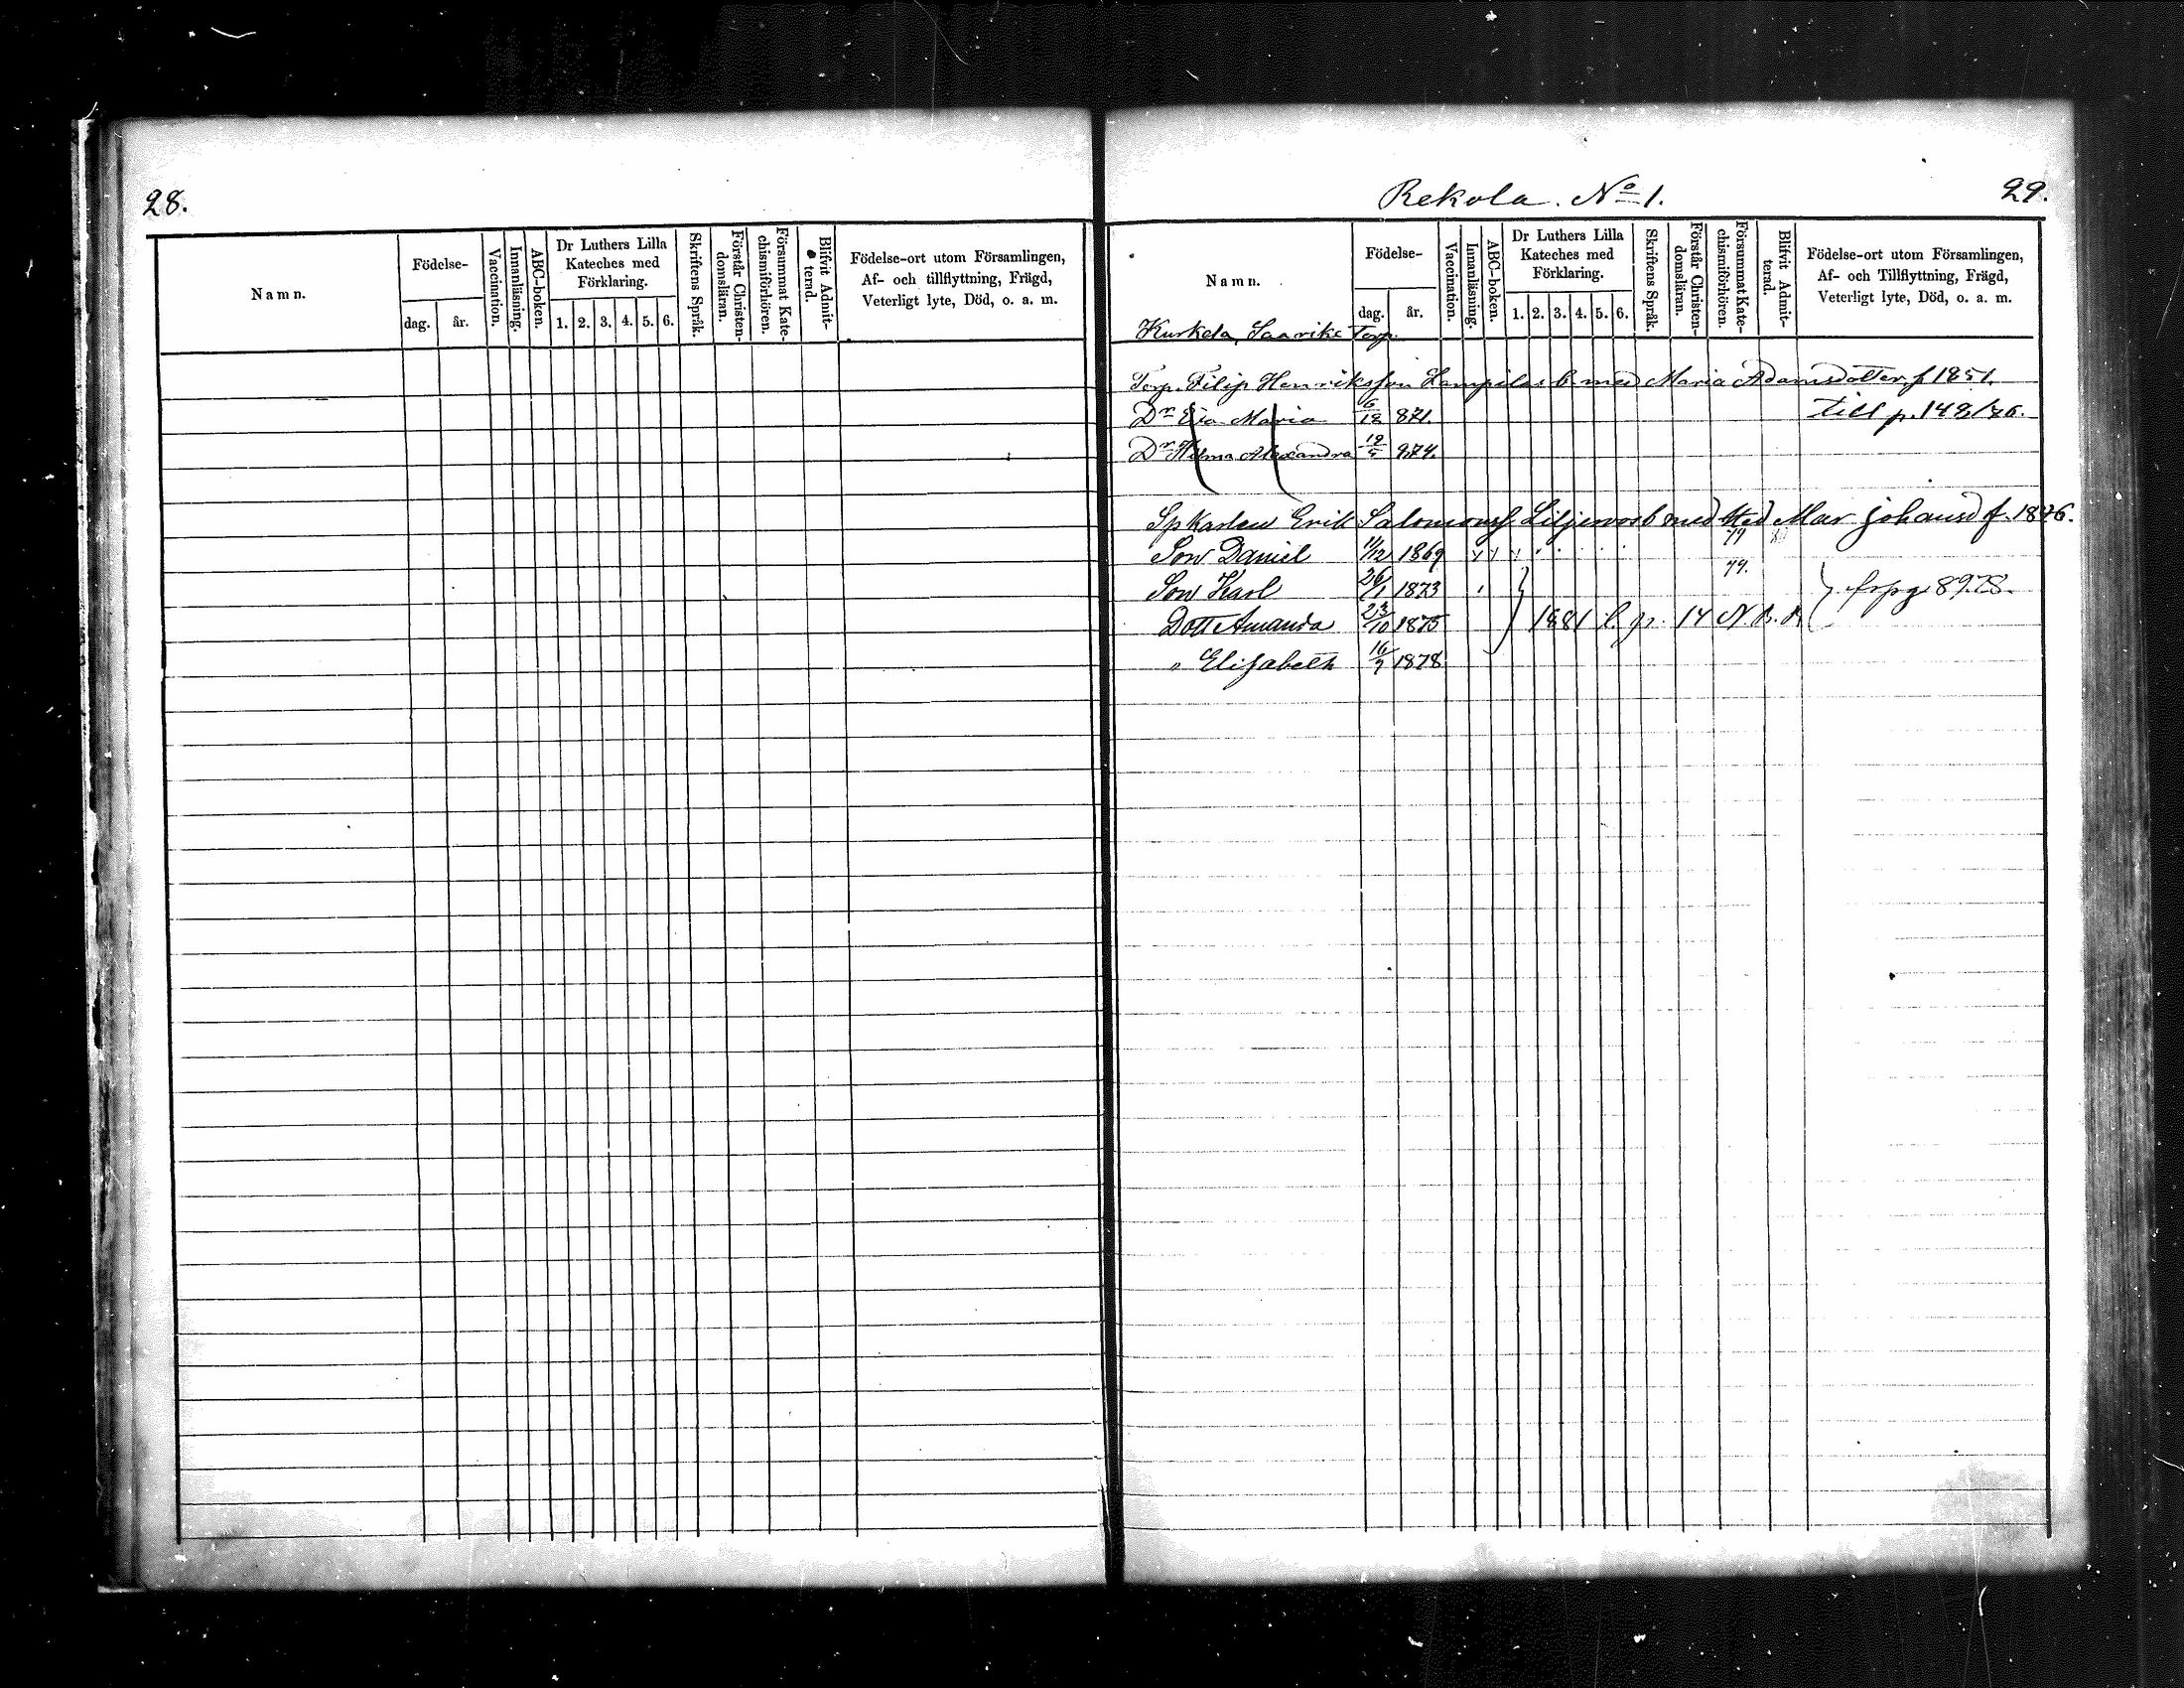 28.
Namn.
Födelse-
dag.
år.
Vaccination.
Innanläsning.
ABC-boken.
Dr Luthers Lilla
Kateches med
Förklaring.
1. 2. 3. 4. 5. 6.
Skriftens Språk.
Förstår Christen-
domsläran.
Försummat Kate-
chismiförhören.
Blifvit Admit-
terad.
Födelse-ort utom Församlingen,
Af- och tillflyttning, Frägd,
Veterligt lyte, Död, o. a. m.
Rekola. No 1.
29.
Namn.
Födelse-
dag.
år.
Vaccination.
Innanläsning.
ABC-boken.
Dr Luthers Lilla
Kateches med
Förklaring.
1. 2. 3. 4. 5. 6.
Skriftens Språk.
Förstår Christen-
domsläran.
Försummat Kate-
chismiförhören.
Blifvit Admit-
terad.
Födelse-ort utom Församlingen,
Af- och Tillflyttning, Frägd,
Veterligt lyte, Död, o. a. m.
Kurkela, Saarike Torp.
Torp. Filip Henriksson b. med Maria Adamsdotter f 1851.
Dr Eva Maria 6/12 871. till p. 149/76.
Dr Hilma Alexandra 874.
Erik Salomonss. med Mar Johansd f. 1846.
Son Daniel 11/12 1869 79
Son Karl 26/1 1873 79. frpg 89.78.
Dott Amanda 23/10 1875 1881 l. p. 14 N. B.
" Elisabeth 16/9 1878